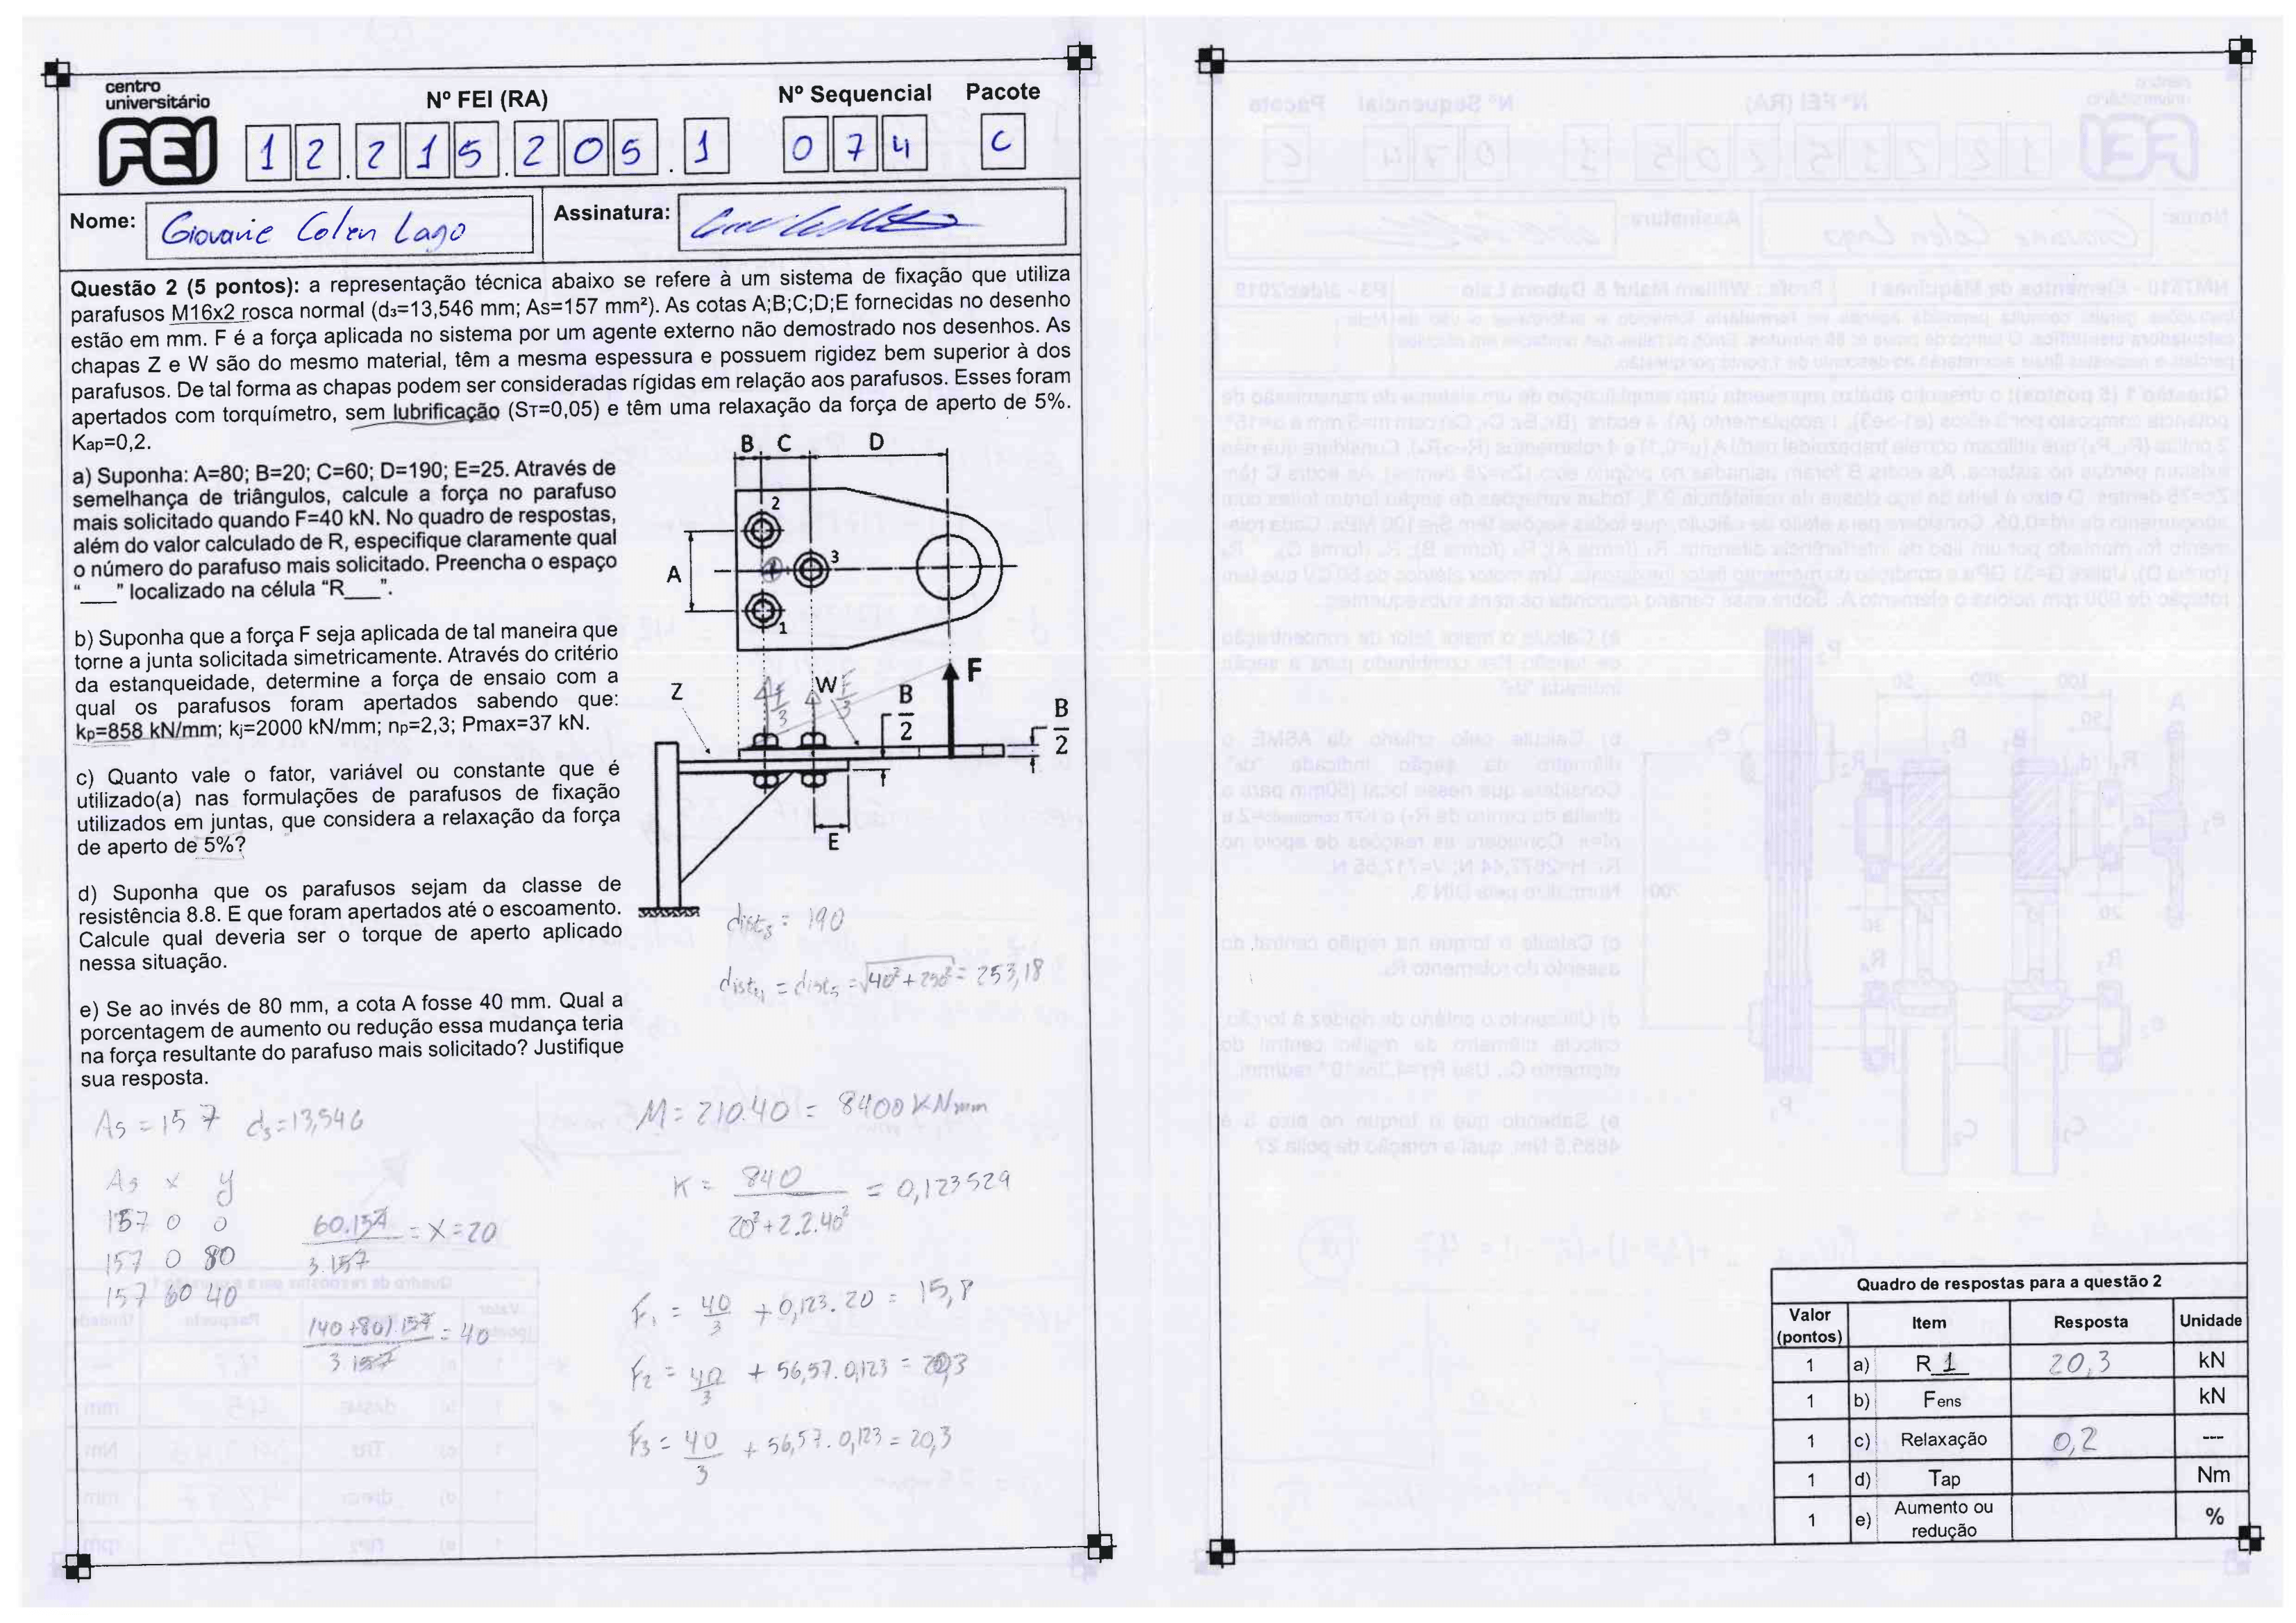 centro
universitário
FEI
Nº FEI (RA)
Nº Sequencial
Pacote
12.215.205.1
074
C
Nome:
Giovanie Colen Lago
Assinatura:
Questão 2 (5 pontos): a representação técnica abaixo se refere à um sistema de fixação que utiliza
parafusos M16x2 rosca normal (d3=13,546 mm; As=157 mm²). As cotas A;B;C;D;E fornecidas no desenho
estão em mm. F é a força aplicada no sistema por um agente externo não demostrado nos desenhos. As
chapas Z e W são do mesmo material, têm a mesma espessura e possuem rigidez bem superior à dos
parafusos. De tal forma as chapas podem ser consideradas rígidas em relação aos parafusos. Esses foram
apertados com torquímetro, sem lubrificação (ST=0,05) e têm uma relaxação da força de aperto de 5%.
Kap=0,2.
a) Suponha: A=80; B=20; C=60; D=190; E=25. Através de
semelhança de triângulos, calcule a força no parafuso
mais solicitado quando F=40 kN. No quadro de respostas,
além do valor calculado de R, especifique claramente qual
o número do parafuso mais solicitado. Preencha o espaço
"___" localizado na célula "R___".
b) Suponha que a força F seja aplicada de tal maneira que
torne a junta solicitada simetricamente. Através do critério
da estanqueidade, determine a força de ensaio com a
qual os parafusos foram apertados sabendo que:
kp=858 kN/mm; kj=2000 kN/mm; np=2,3; Pmax=37 kN.
c) Quanto vale o fator, variável ou constante que é
utilizado(a) nas formulações de parafusos de fixação
utilizados em juntas, que considera a relaxação da força
de aperto de 5%?
d) Suponha que os parafusos sejam da classe de
resistência 8.8. E que foram apertados até o escoamento.
Calcule qual deveria ser o torque de aperto aplicado
nessa situação.
e) Se ao invés de 80 mm, a cota A fosse 40 mm. Qual a
porcentagem de aumento ou redução essa mudança teria
na força resultante do parafuso mais solicitado? Justifique
sua resposta.
B C D
2
3
A
1
F
Z
W
F/3
F/3
B/2
B/2
E
dist3 = 190
dist4 = dist5 = √40²+250² = 253,18
As = 157 d3=13,546
As x y
157 0 0
157 0 80
157 60 40
60.157 / 3.157 = x = 20
(40+80).157 / 3.157 = 40
M = 210.40 = 8400 kNmm
K = 840 / 20²+2.2.40² = 0,123529
F1 = 40/3 + 0,123.20 = 15,8
F2 = 40/3 + 56,57.0,123 = 20,3
F3 = 40/3 + 56,57.0,123 = 20,3
Quadro de respostas para a questão 2
Valor (pontos) Item Resposta Unidade
1 a) R 1 20,3 kN
1 b) Fens kN
1 c) Relaxação 0,2 ---
1 d) Tap Nm
1 e) Aumento ou redução %